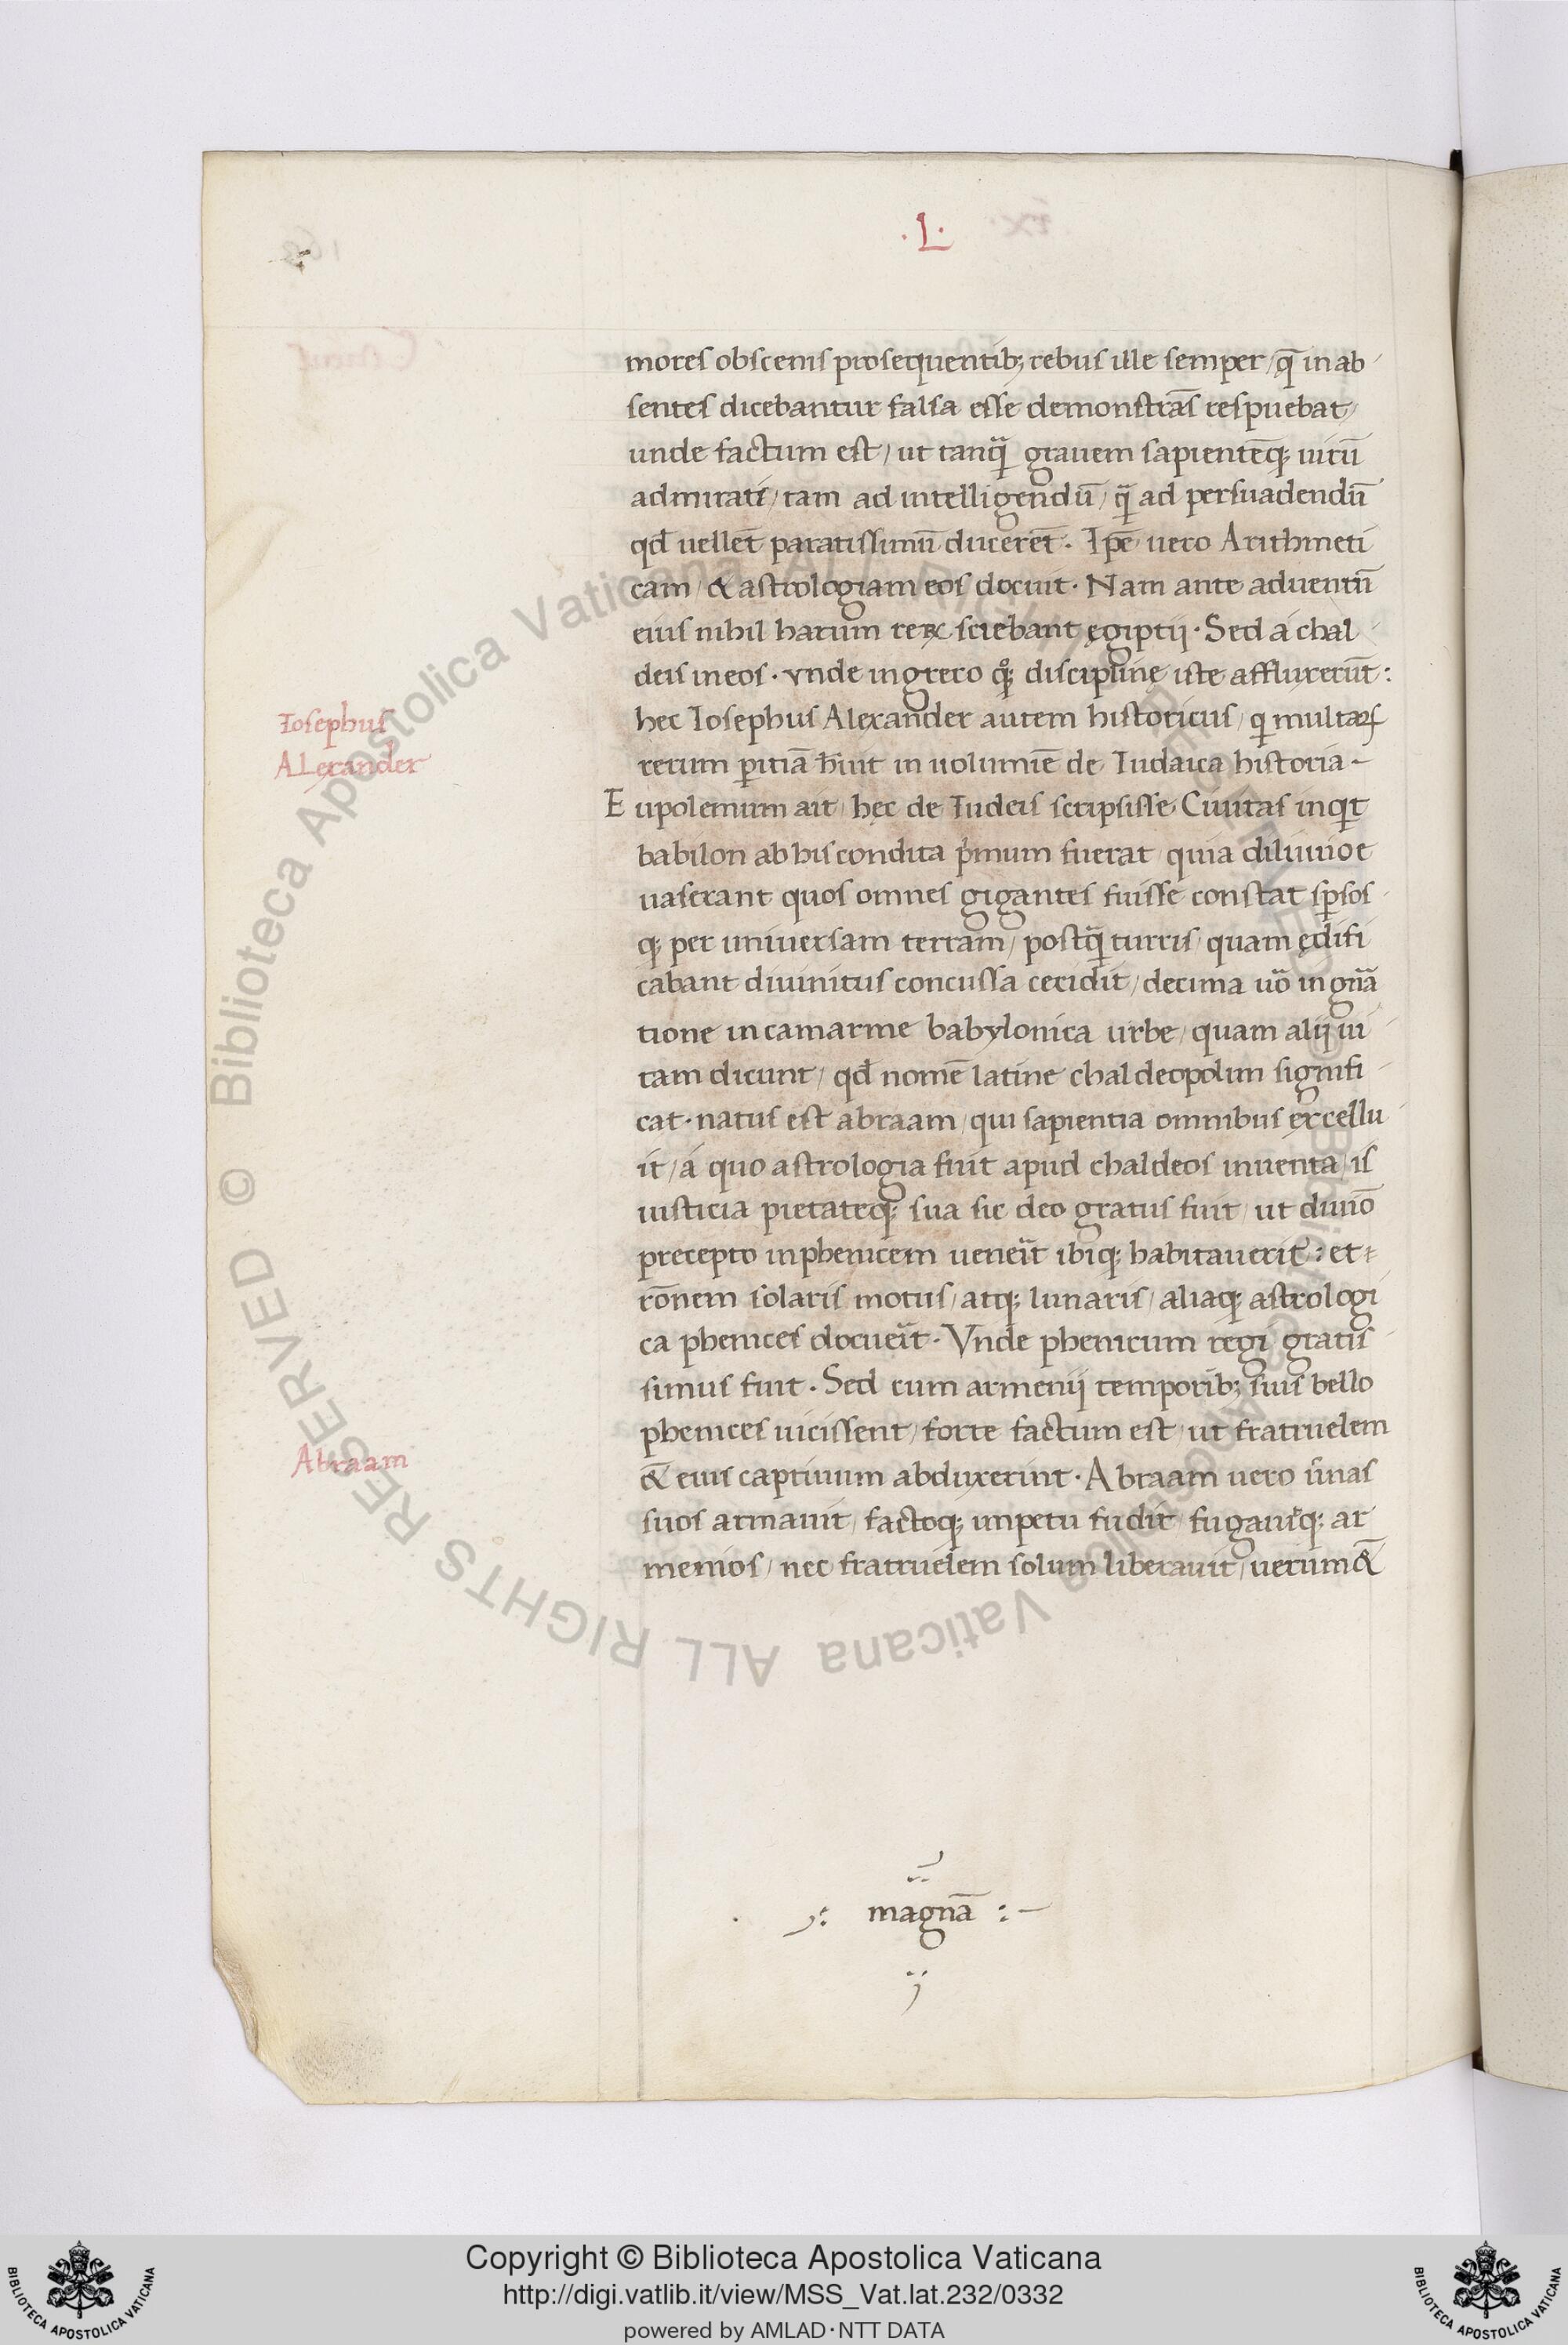 .L.
mores obscenis prosequentib; rebus ille semper / q̄ in ab
sentes dicebantur falsa esse demonstrās respuebat /
unde factum est / ut tanq̄ grauem sapientēq; uirū
admirati / tam ad intelligendū / q̄ ad persuadendū
qđ uellēt paratissimū ducerēt. Ipē uero Arithmeti
cam / & astrologiam eos docuit. Nam ante aduentū
eius nihil harum reꝝ sciebant ęgiptij. Sed á chal
deis in eos. vnde in greco q̊; discipline iste affluxerūt:
hec Iosephus Alexander autem historicus / q multaꝝ
rerum ꝑitiā h̄uit in uolumīe de Iudaica historia –
Iosephus
ALexander
E upolemum ait / hęc de Iudeis scripsisse Ciuitas inqt
babilon ab his condita pͥmum fuerat quia diluuio e
uaserant quos omnes gigantes fuisse constat spͥsos
q; per uniuersam terram / postq̄ turris / quam ędifi
cabant diuinitus concussa cecidit / decima uō in gn̄ā
tione in camarme babylonica urbe / quam alij ui
tam dicunt / qđ nomē latine chaldeopolim signifi
cat. natus est abraam / qui sapientia omnibus excellu
it / á quo astrologia fuit apud chaldeos inuenta / is
iusticia pietateq; sua sic deo gratus fuit / ut diuīo
precepto in phenicem uenēit ibiq; habitauerit: et
rōnem solaris motus / atq; lunaris / aliaq; astrologi
ca phenices docuēit. Vnde phenicum regi gratis
simus fuit. Sed cum armenij temporib; suis bello
phenices uicissent / forte factum est / ut fratruelem
Abraam
&̄ eius captiuum abduxerint. Abraam uero u̅nas
suos armauit / factoq; impetu fudit / fugauitq; ar
menios / nec fratruelem solum liberauit / uerum &̄
magnā :–
Copyright © Biblioteca Apostolica Vaticana
http://digi.vatlib.it/view/MSS_Vat.lat.232/0332
powered by AMLAD·NTT DATA
BIBLIOTECA APOSTOLICA VATICANA
BIBLIOTECA APOSTOLICA VATICANA
© Biblioteca Apostolica Vaticana ALL RIGHTS RESERVED © Biblioteca Apostolica Vaticana ALL RIGHTS RESERVED